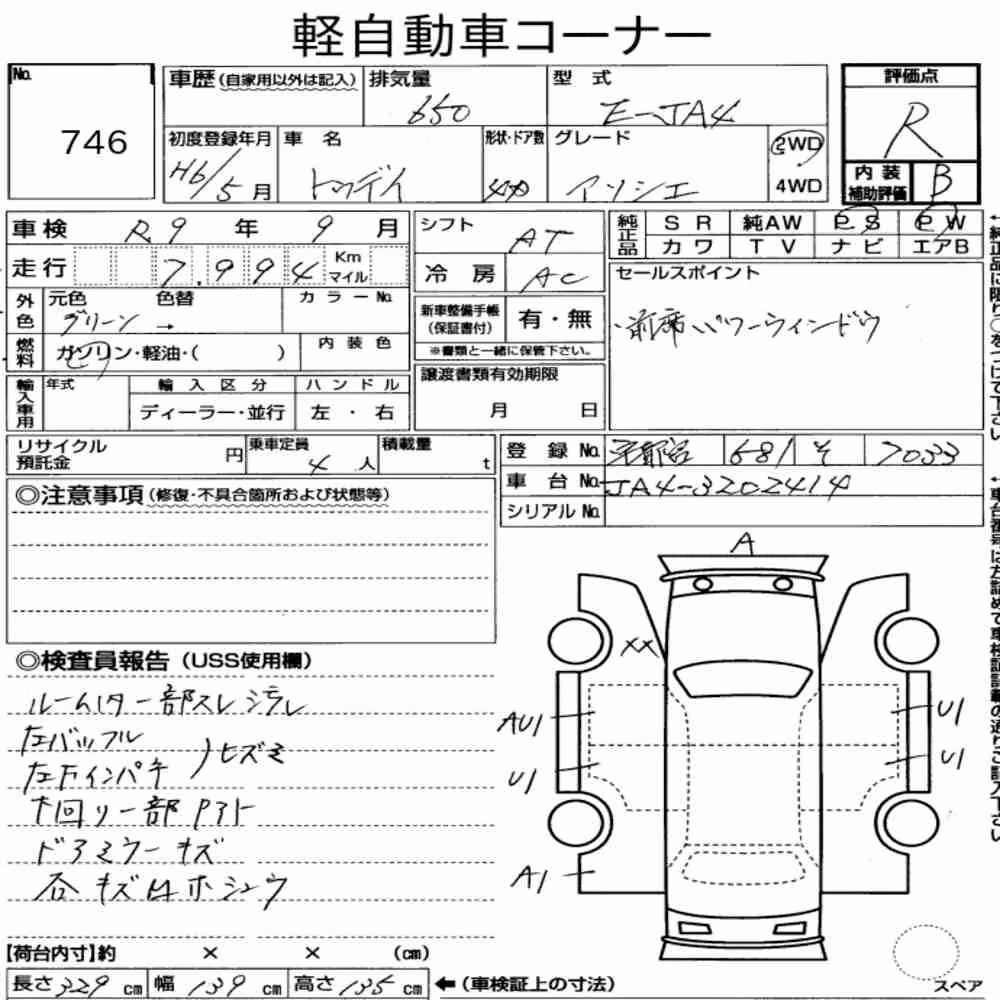 軽自動車コーナー
No. 746
車歴(自家用以外は記入) 排気量 650 型式 E-JA4 評価点 R
初度登録年月 H6/5月 車名 トゥデイ 形状・ドア数 グレード アソシエ 2WD 4WD 内装補助評価 B
車検 R9年 9月 シフト AT 純正品 SR 純AW PS PW
カワ TV ナビ エアB
走行 7,994 Km マイル 冷房 AC セールスポイント
外色 元色 グリーン 色替 → カラーNo. 新車整備手帳(保証書付) 有・無 ・前席パワーウィンドウ
燃料 ガソリン・軽油・( ) 内装色 ※書類と一緒に保管下さい。
輸入車用 年式 輸入区分 ハンドル 譲渡書類有効期限
ディーラー・並行 左・右 月 日
リサイクル預託金 円 乗車定員 4人 積載量 t 登録No. 681 そ 7033
車台No. JA4-3202414
シリアルNo.
◎注意事項(修復・不具合箇所および状態等)
A
XX
◎検査員報告(USS使用欄)
一部スレ
左バッフル
左下インパネ
ヒズミ
ドアミラーキズ
AU1
U1
U1
U1
A1
【荷台内寸】約 × × (cm)
長さ 329 cm 幅 139 cm 高さ 135 cm ←(車検証上の寸法)
スペア